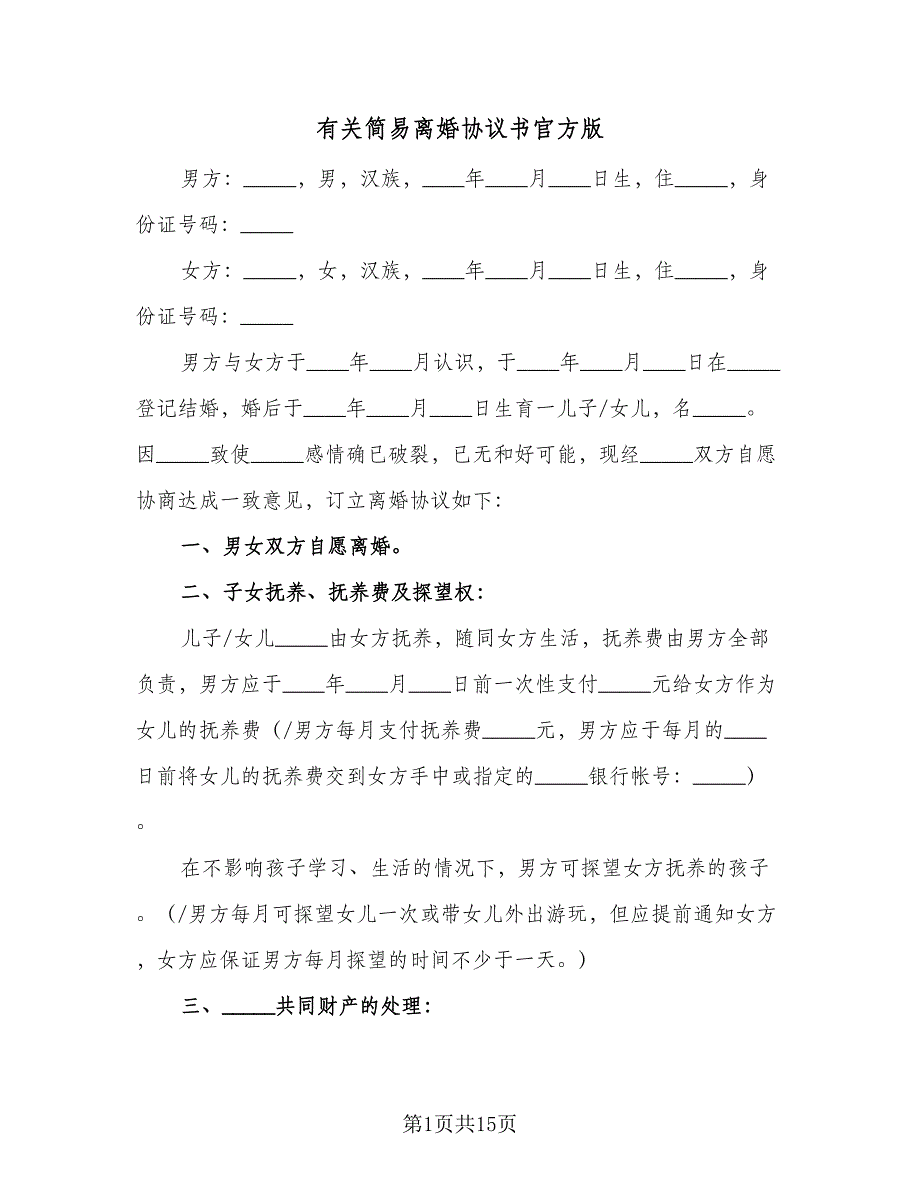 有关简易离婚协议书官方版
男方：_____，男，汉族，____年____月____日生，住_____，身
份证号码：_____
女方：_____，女，汉族，____年____月____日生，住_____，身
份证号码：_____
男方与女方于____年____月认识，于____年____月____日在_____
登记结婚，婚后于____年____月____日生育一儿子/女儿，名_____。
因_____致使_____感情确已破裂，已无和好可能，现经_____双方自愿
协商达成一致意见，订立离婚协议如下：
一、男女双方自愿离婚。
二、子女抚养、抚养费及探望权：
儿子/女儿_____由女方抚养，随同女方生活，抚养费由男方全部
负责，男方应于____年____月____日前一次性支付_____元给女方作为
女儿的抚养费（/男方每月支付抚养费_____元，男方应于每月的____
日前将女儿的抚养费交到女方手中或指定的_____银行帐号：_____）
。
在不影响孩子学习、生活的情况下，男方可探望女方抚养的孩子
。（/男方每月可探望女儿一次或带女儿外出游玩，但应提前通知女方
，女方应保证男方每月探望的时间不少于一天。）
三、_____共同财产的处理：
第1页共15页